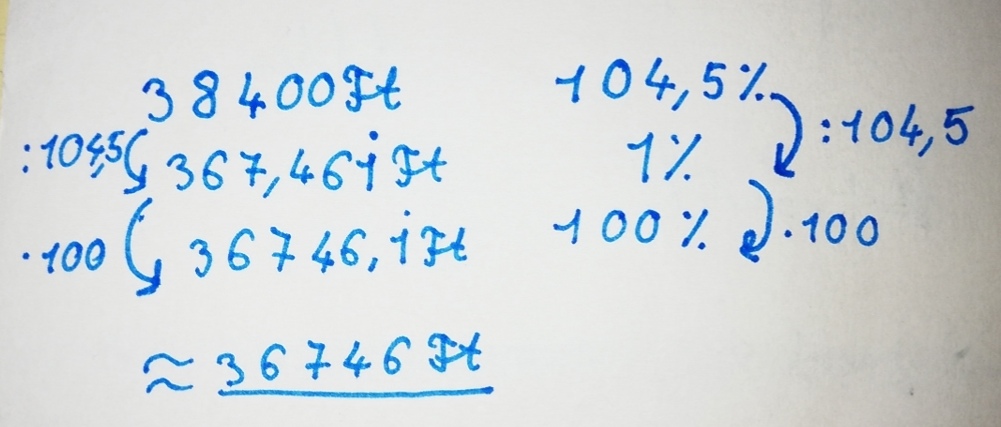 38400Ft 104,5%
:104,5 367,461 Ft 1% :104,5
·100 36746,1Ft 100% ·100
≈ 36746 Ft